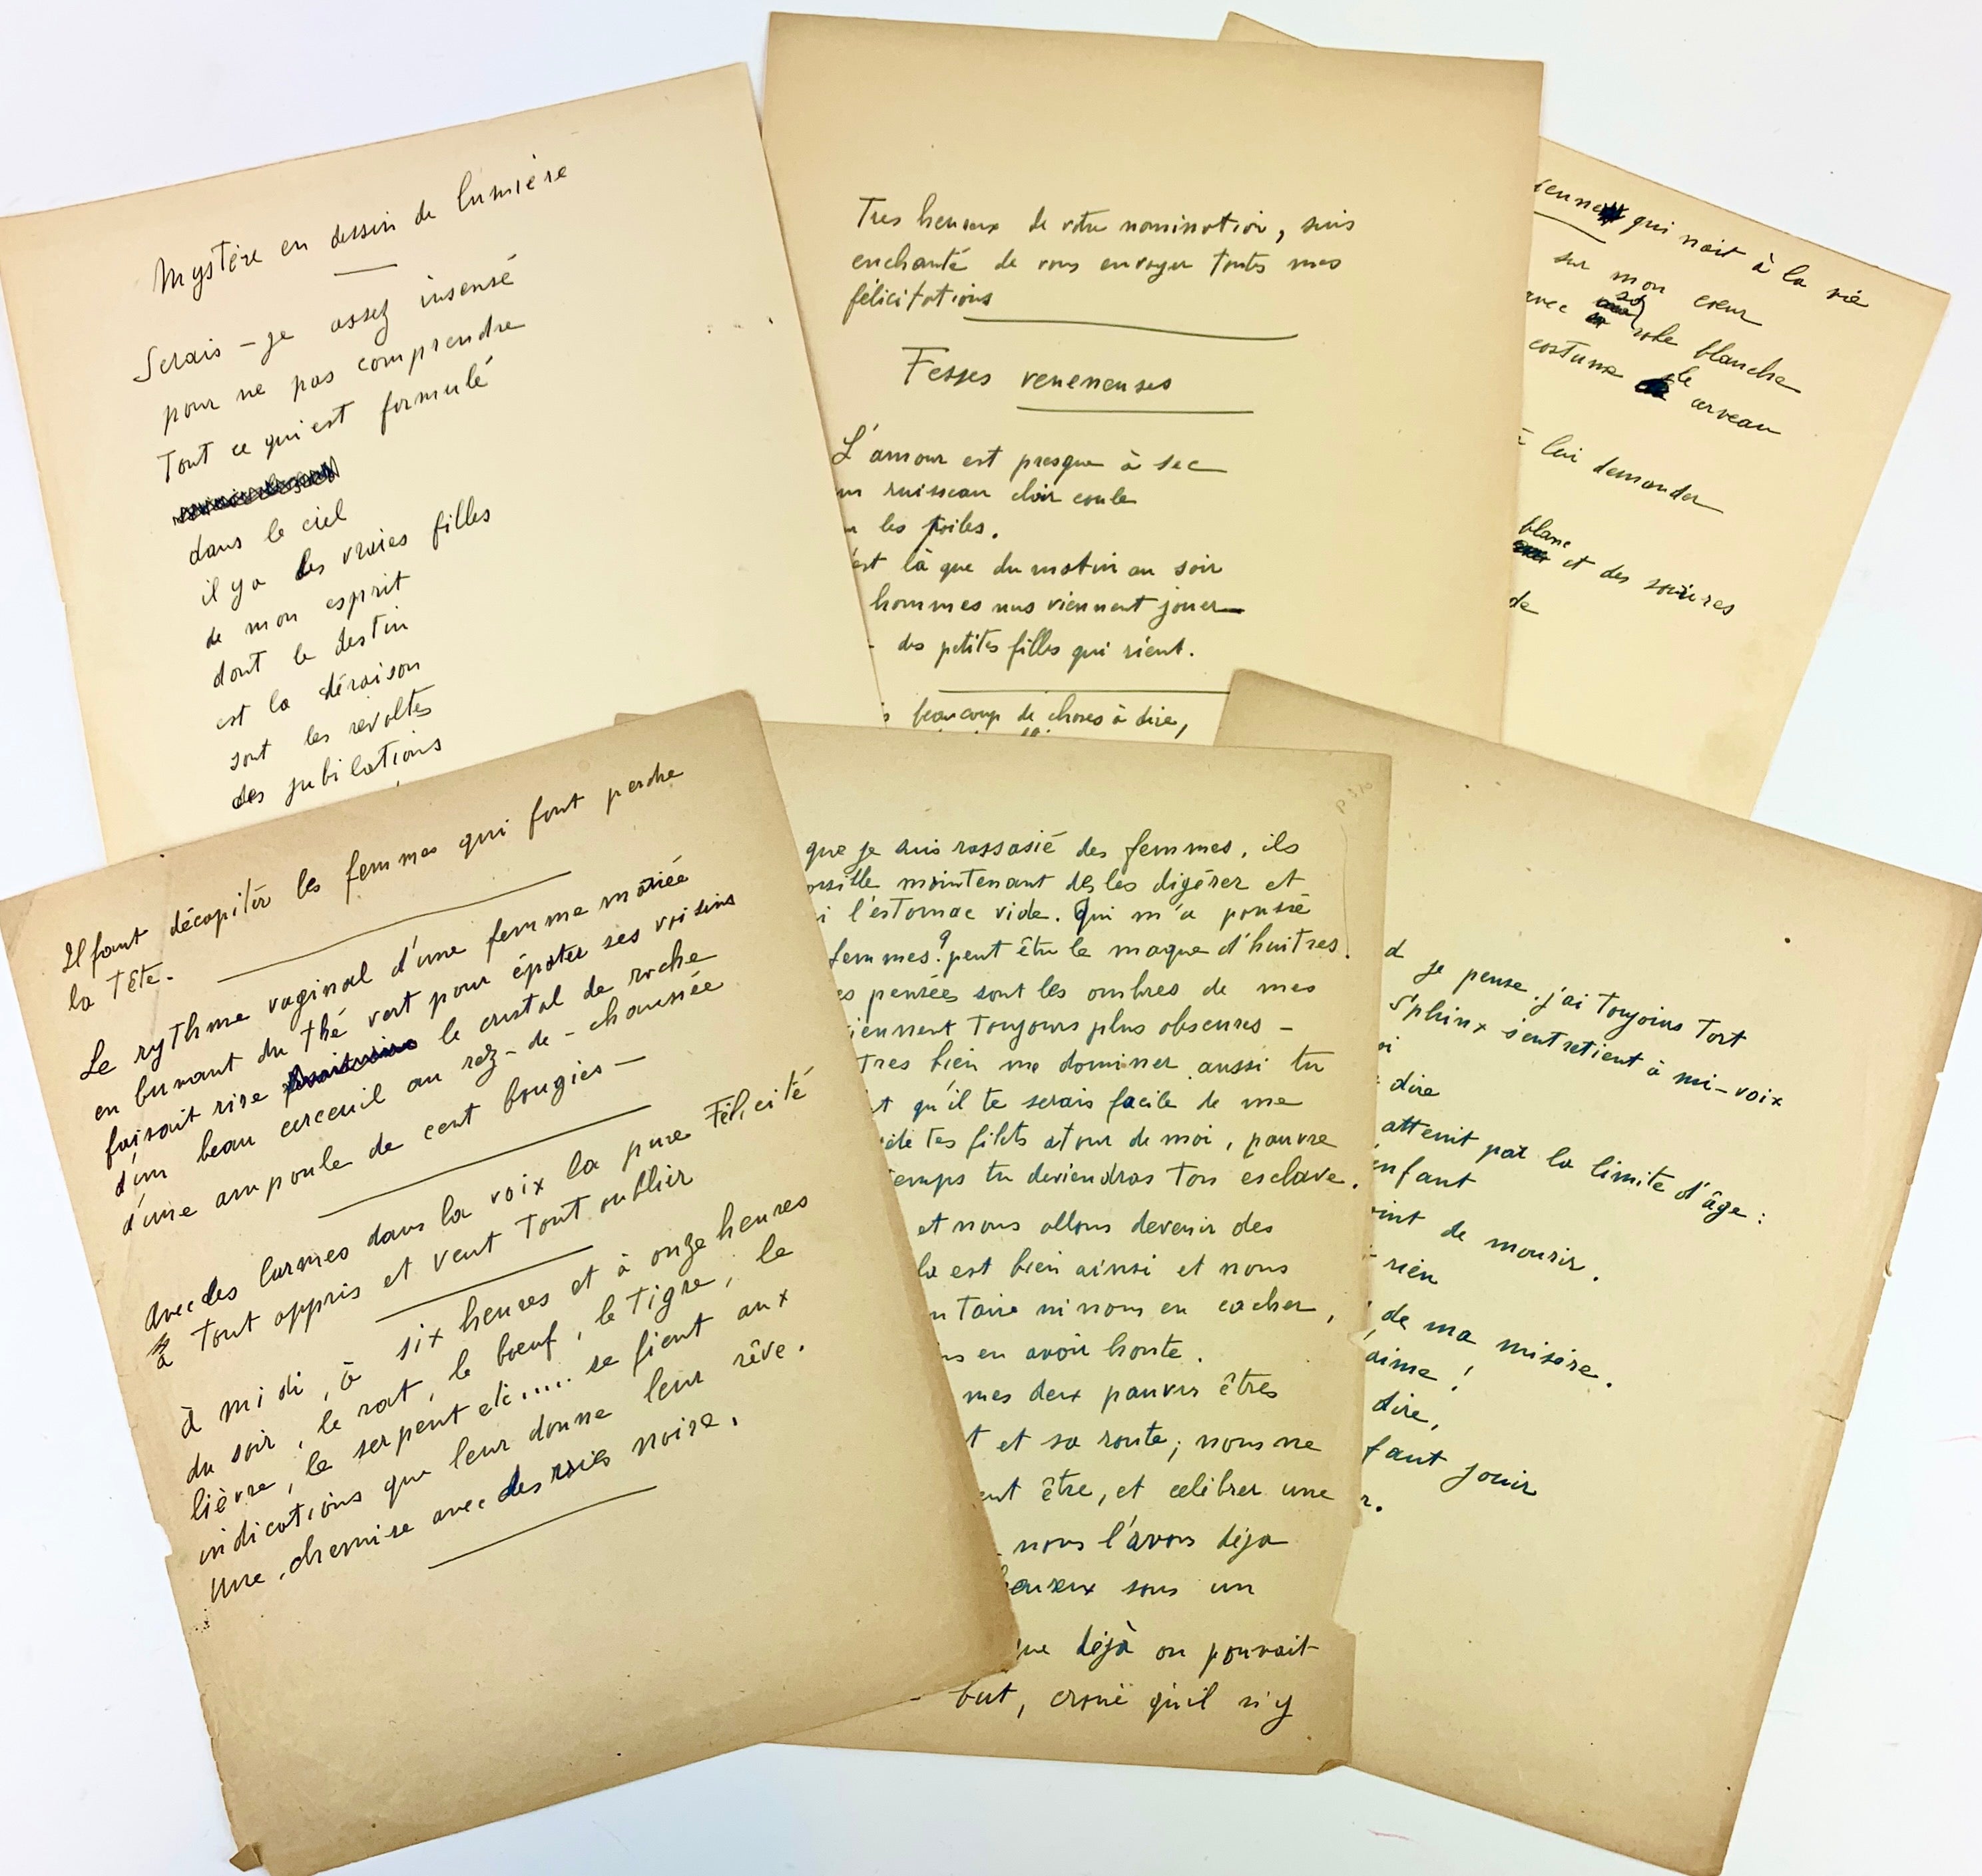 Mystère en dessin de lumière
Serais-je assez insensé
pour ne pas comprendre
Tout ce qui est formulé
dans le ciel
il y a des vraies filles
de mon esprit
dont le destin
est la déraison
sont les revoltes
des jubilations
Tres heureux de votre nomination, suis
enchanté de vous envoyer toutes mes
félicitations
Fesses veneneuses
L'amour est presque à sec
ruisseau clair coule
les poiles.
est là que du matin au soir
hommes nus viennent jouer
des petites filles qui rient.
beaucoup de choses à dire,
qui nait à la vie
sur mon cœur
avec sa robe blanche
costume le cerveau
lui demander
blanc et des sourires
de
Il faut décapiter les femmes qui font perdre
la Tête.
Le rythme vaginal d'une femme mariée
en buvant du Thé vert pour épater ses voisins
faisait rire le cristal de roche
d'un beau cerceuil au rez-de-chaussée
d'une ampoule de cent bougies -
Avec des larmes dans la voix la pure Félicité
à Tout appris et veut Tout oublier
à midi, à six heures et à onze heures
du soir, le rat, le boeuf, le Tigre, le
lièvre, le serpent etc..... se fient aux
indications que leur donne leur rêve.
Une chemise avec des raies noire.
que je suis rassasié des femmes, ils
maintenant de les digérer et
l'estomac vide. Qui m'a poussé
femmes? peut être le manque d'huitres.
es pensées sont les ombres de mes
iennent Toujours plus obscures -
Tres bien me dominer aussi tu
qu'il te serais facile de me
de Tes filets autour de moi, pauvre
emps tu deviendras Ton esclave.
et nous allons devenir des
la est bien ainsi et nous
Taire ni nous en cacher,
en avoir honte.
mes deux pauvres êtres
et sa route; nous ne
ent être, et celibrer une
nous l'avons déja
heureux sous un
que déjà on pouvait
but, croire qu'il n'y
je pense j'ai Toujours Tort
Sphinx s'entretient à mi-voix
dire
atteint par la limite d'âge :
enfant
int de mourir.
rien
de ma misère.
aime !
dire,
faut jouir
r.